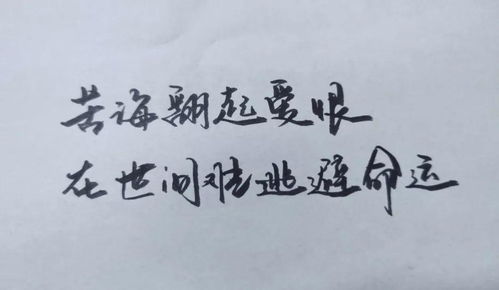 苦海翻起爱恨
在世间难逃避命运